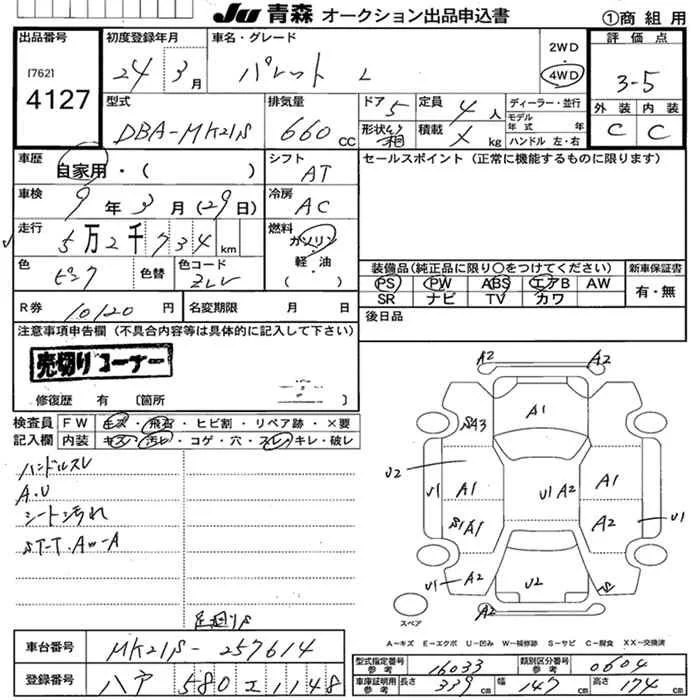 JU 青森 オークション出品申込書 ①商組用
出品番号
[762]
4127
初度登録年月
24年3月
車名・グレード
パレット L
2WD
4WD
評価点
3-5
外装 内装
C C
型式
DBA-MK21S
排気量
660 CC
ドア 5
形状 箱
定員 4人
積載 X kg
ディーラー・並行
モデル年式 年
ハンドル 左・右
車歴
自家用・( )
シフト
AT
セールスポイント(正常に機能するものに限ります)
車検
9年3月(29日)
冷房
AC
走行
5万2千734km
燃料
ガソリン
軽・油
色
ピンク
色替
色コード
ZLV
装備品(純正品に限り○をつけてください)
PS PW ABS エアB AW
SR ナビ TV カワ
新車保証書
有・無
R券 10120円
名変期限 月 日
後日品
注意事項申告欄(不具合内容等は具体的に記入して下さい)
売切りコーナー
修復歴 有 〔箇所
検査員記入欄
FW キズ・飛石・ヒビ割・リペア跡・×要
内装 キズ・汚レ・コゲ・穴・スレ・キレ・破レ
ハンドルスレ
A.U
シート汚れ
ST-T.AW-A
足廻りS
A2 A2
A1
SA3
U2
U1 A1 U1 A2 A1
S1A1 A2 U1
U1 A2 U2 S
A2
スペア
A-キズ E-エクボ U-凹み W-補修跡 S-サビ C-腐食 XX-交換済
車台番号
MK21S-257614
登録番号
八戸 580 エ 1148
型式指定番号参考 16033
類別区分番号参考 0604
車庫証明用参考 長さ 339cm 幅 147cm 高さ 174cm